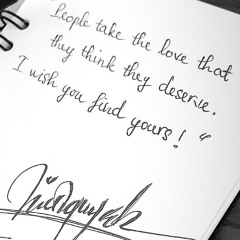 People take the love that
they think they deserve.
I wish you find yours! "